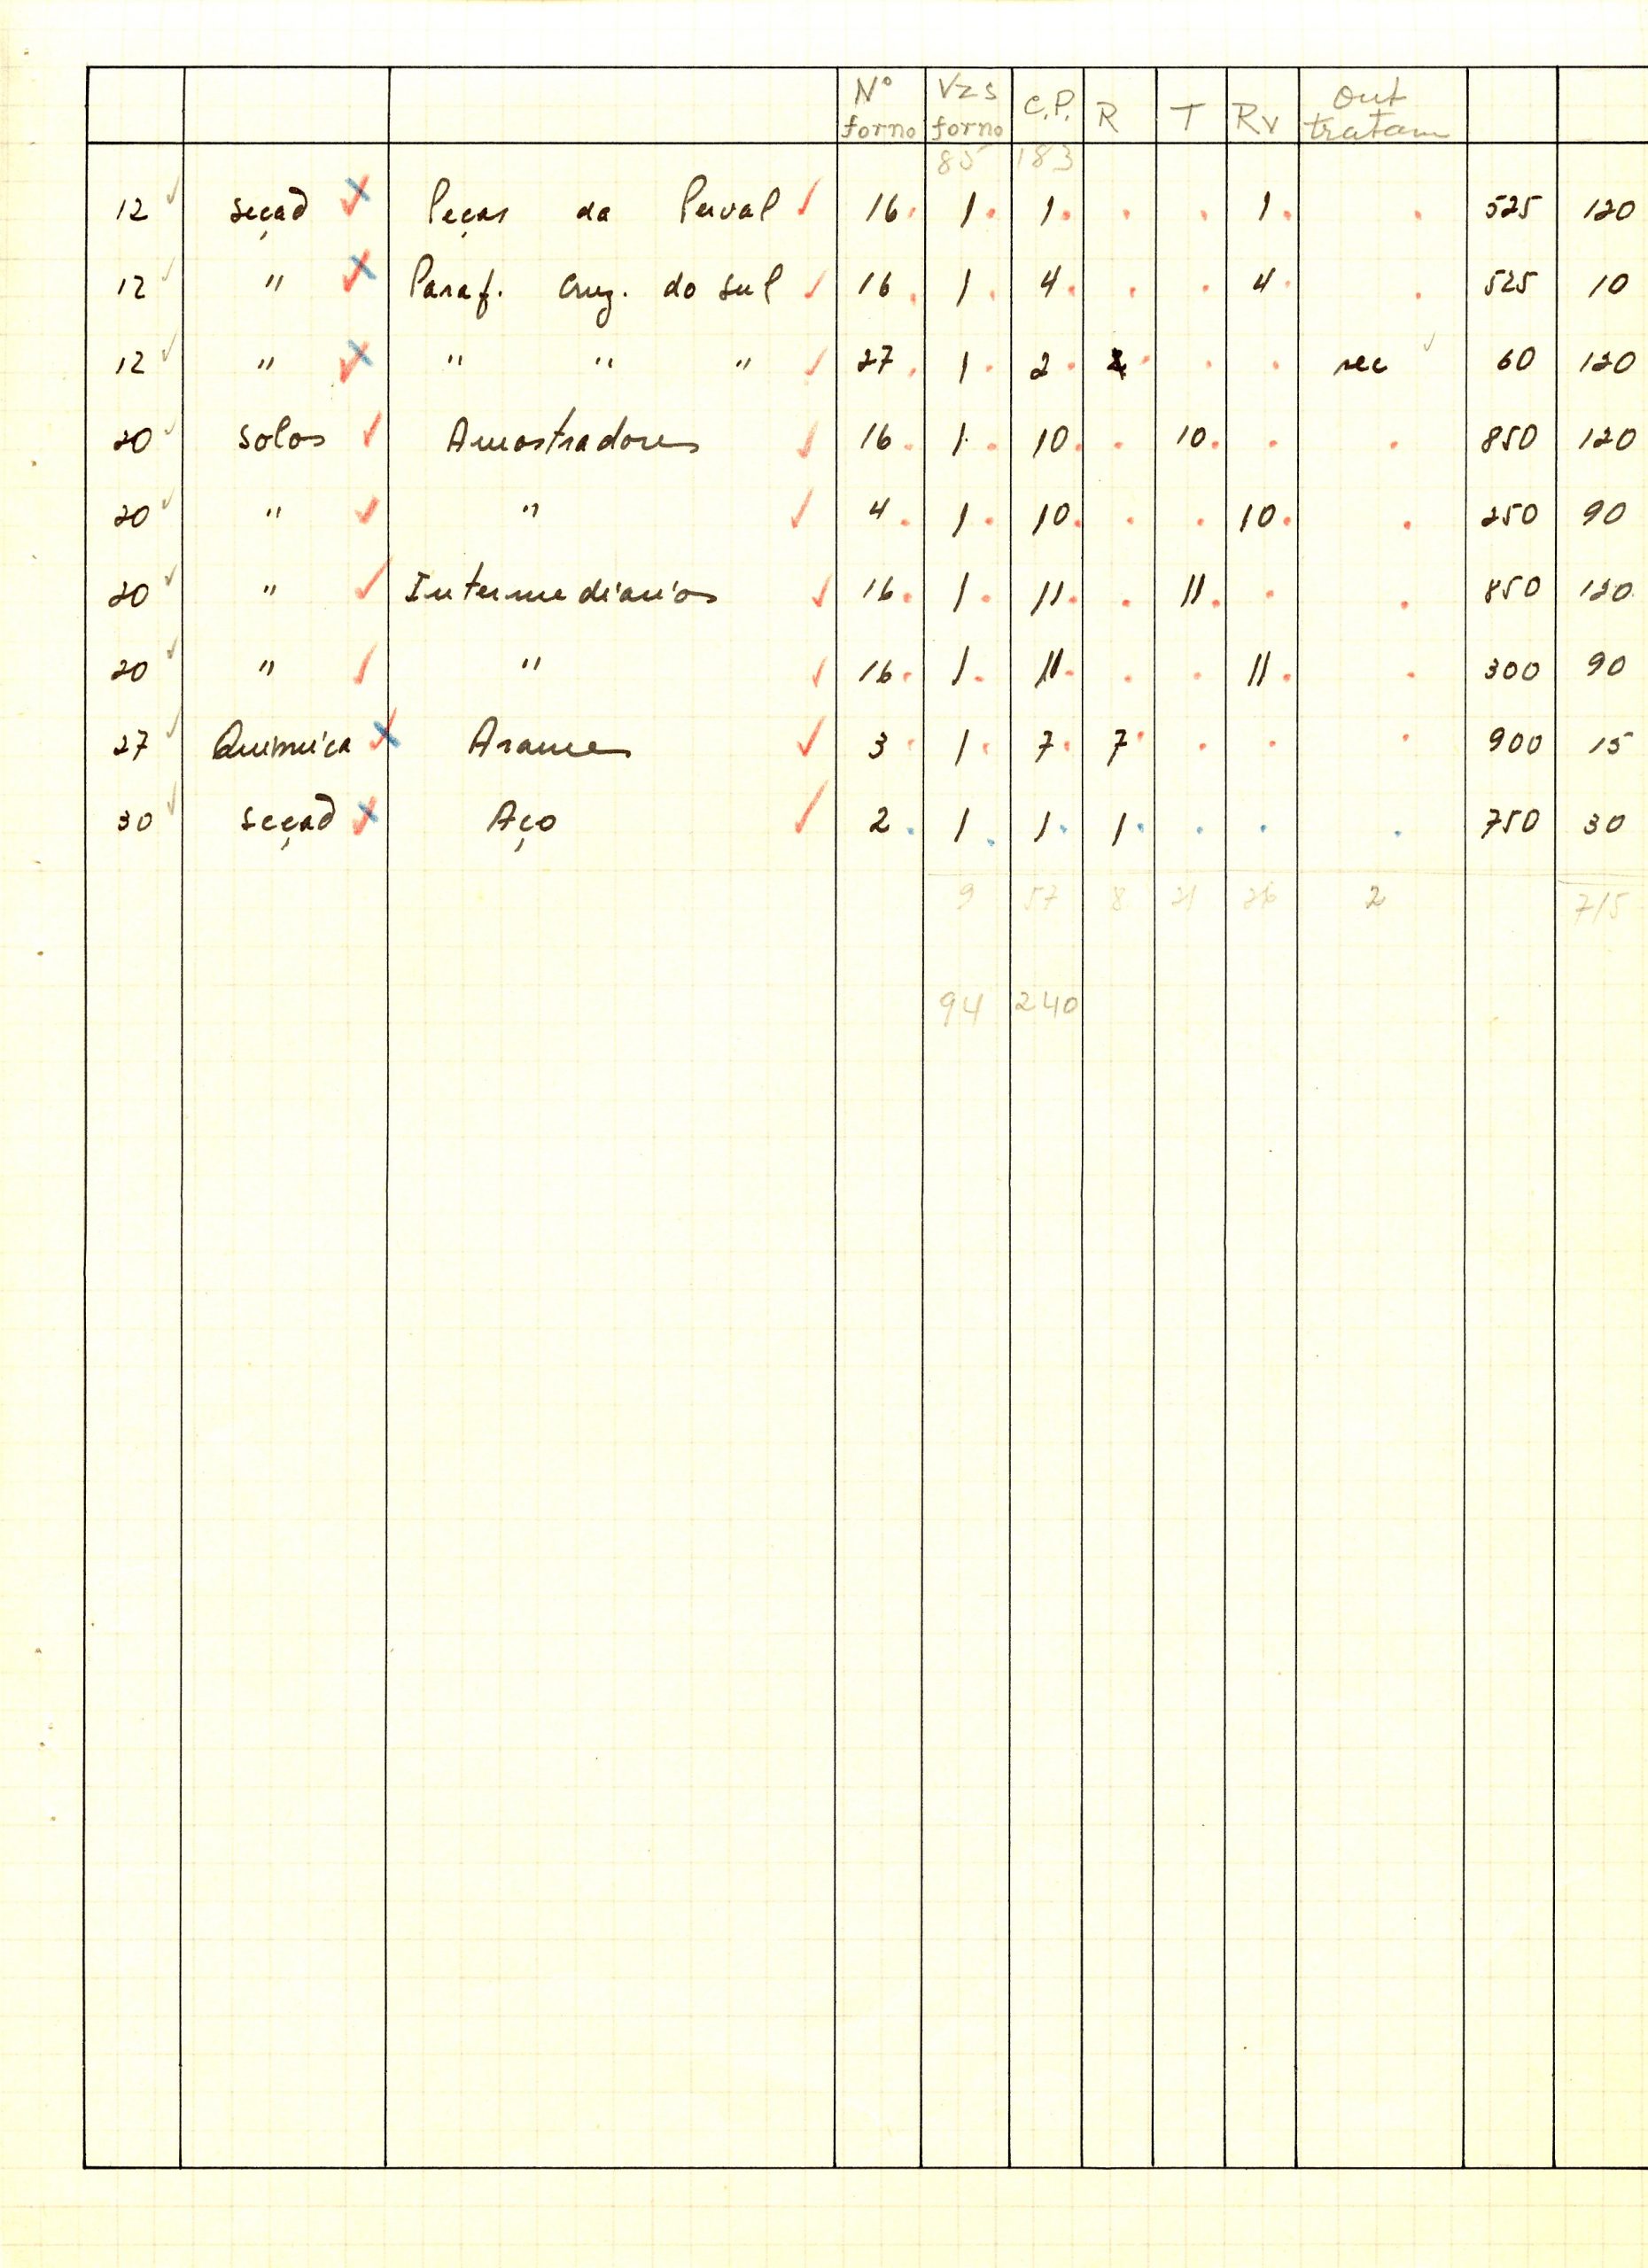 Nº forno Vzs forno C.P. R T Rv Out tratam
85 183
12 seção Peças da 16 1 1 1 525 120
12 " Paraf. Cruz. do sul 16 1 4 4 525 10
12 " " " " 27 1 2 rec 60 120
20 solos Amostradores 16 1 10 10 850 120
20 " " 4 1 10 10 250 90
20 " Intermediários 16 1 11 11 850 120
20 " " 16 1 11 11 300 90
27 Química Arames 3 1 7 7 900 15
30 seção Aço 2 1 1 1 750 30
9 57 8 21 26 2 715
94 240